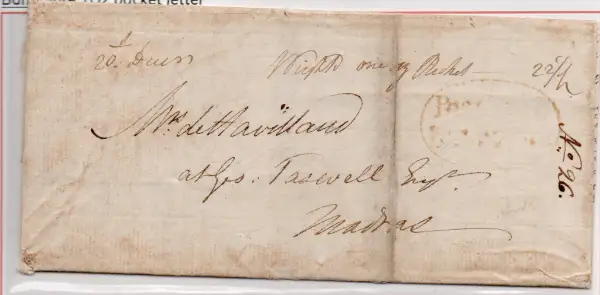 packet letter
20 Decr
Weight one oz Packet
22/
Mrs. de Havilland
at Geo: Taswell Esqr.
Madras
No. 26.